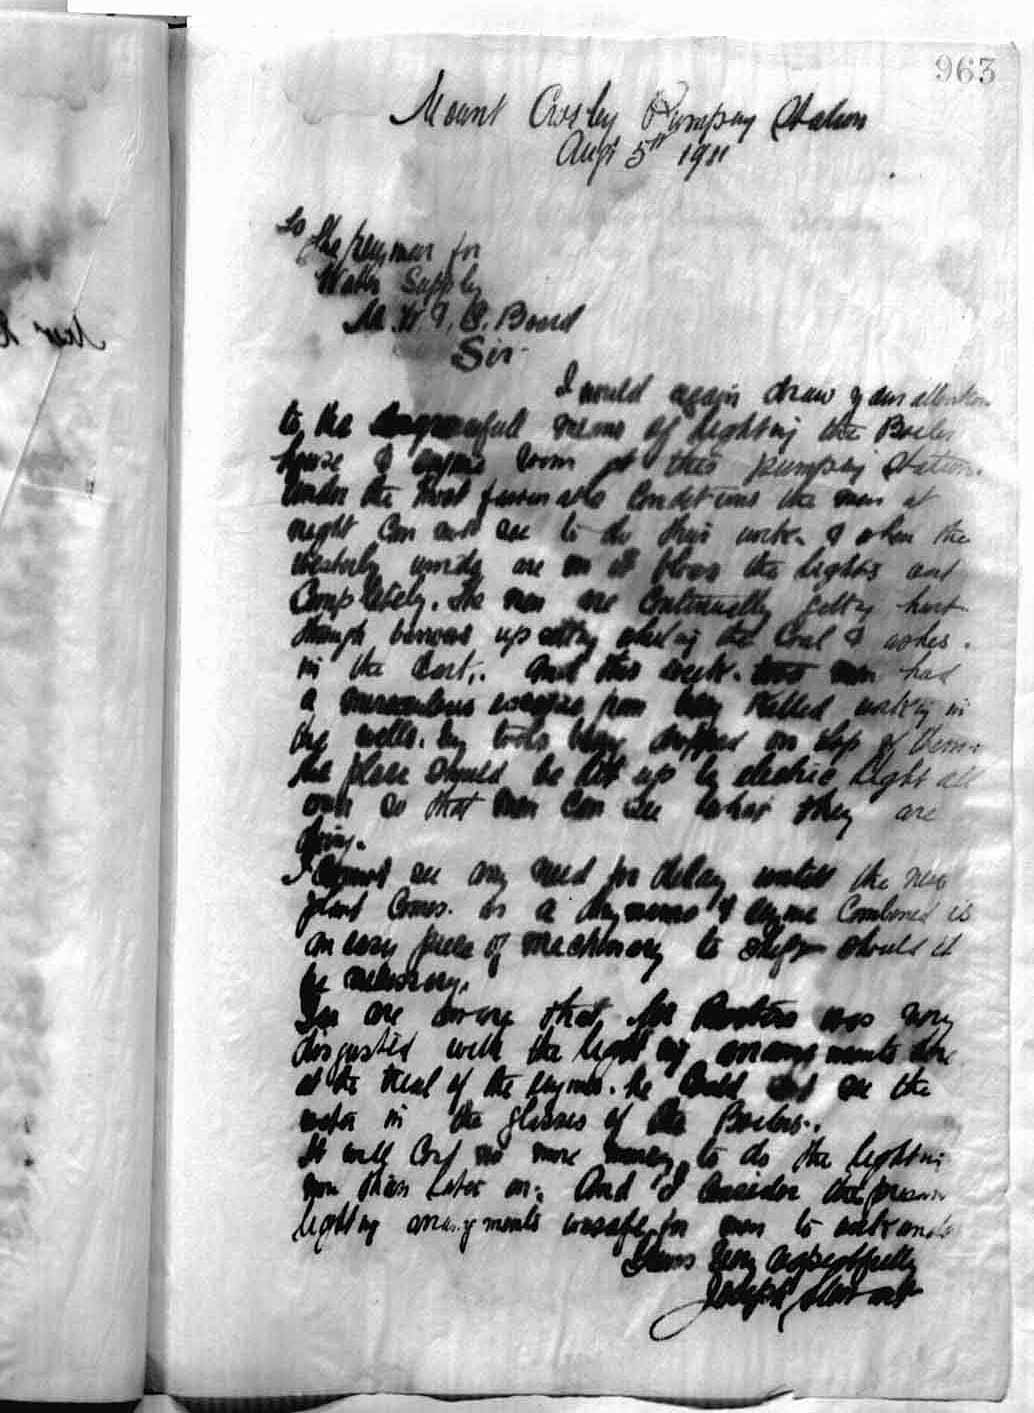 963
Mount Crosby Pumping Station
Augt 5th 1911
To
The Engineer for
Water Supply
M. W. & S. Board
Sir
I would again draw your attention
to the disgracefull means of lighting the Boiler
house & engine room at this pumping Station.
Under the most favourable Conditions the men at
night Can not see to do their work. & when the
westerly winds are on it blows the lights out
Completely. The men are Continually getting hurt
through barrows upsetting wheling the Coal & ashes.
in the dark. And this week. two men had
a miraculous escape from being Killed working in
the wells. by tools being dropped on top of them.
the place should be lit up by electric light all
over so that men Can see what they are
doing.
I Cannot see any need for delay untill the new
plant Comes. as a dynamo & engine Combined is
an easy piece of machinery to shift should it
be necessary.
You are aware that Mr was very
disgusted with the lighting arrangements here
at the trial of the engines. he Could not see the
water in the glasses of the Boilers.
It will Cost no more money to do the lighting
now than later on. And I Consider the present
lighting arrangements unsafe for men to work under
Yours very respectfully
Joseph Stewart